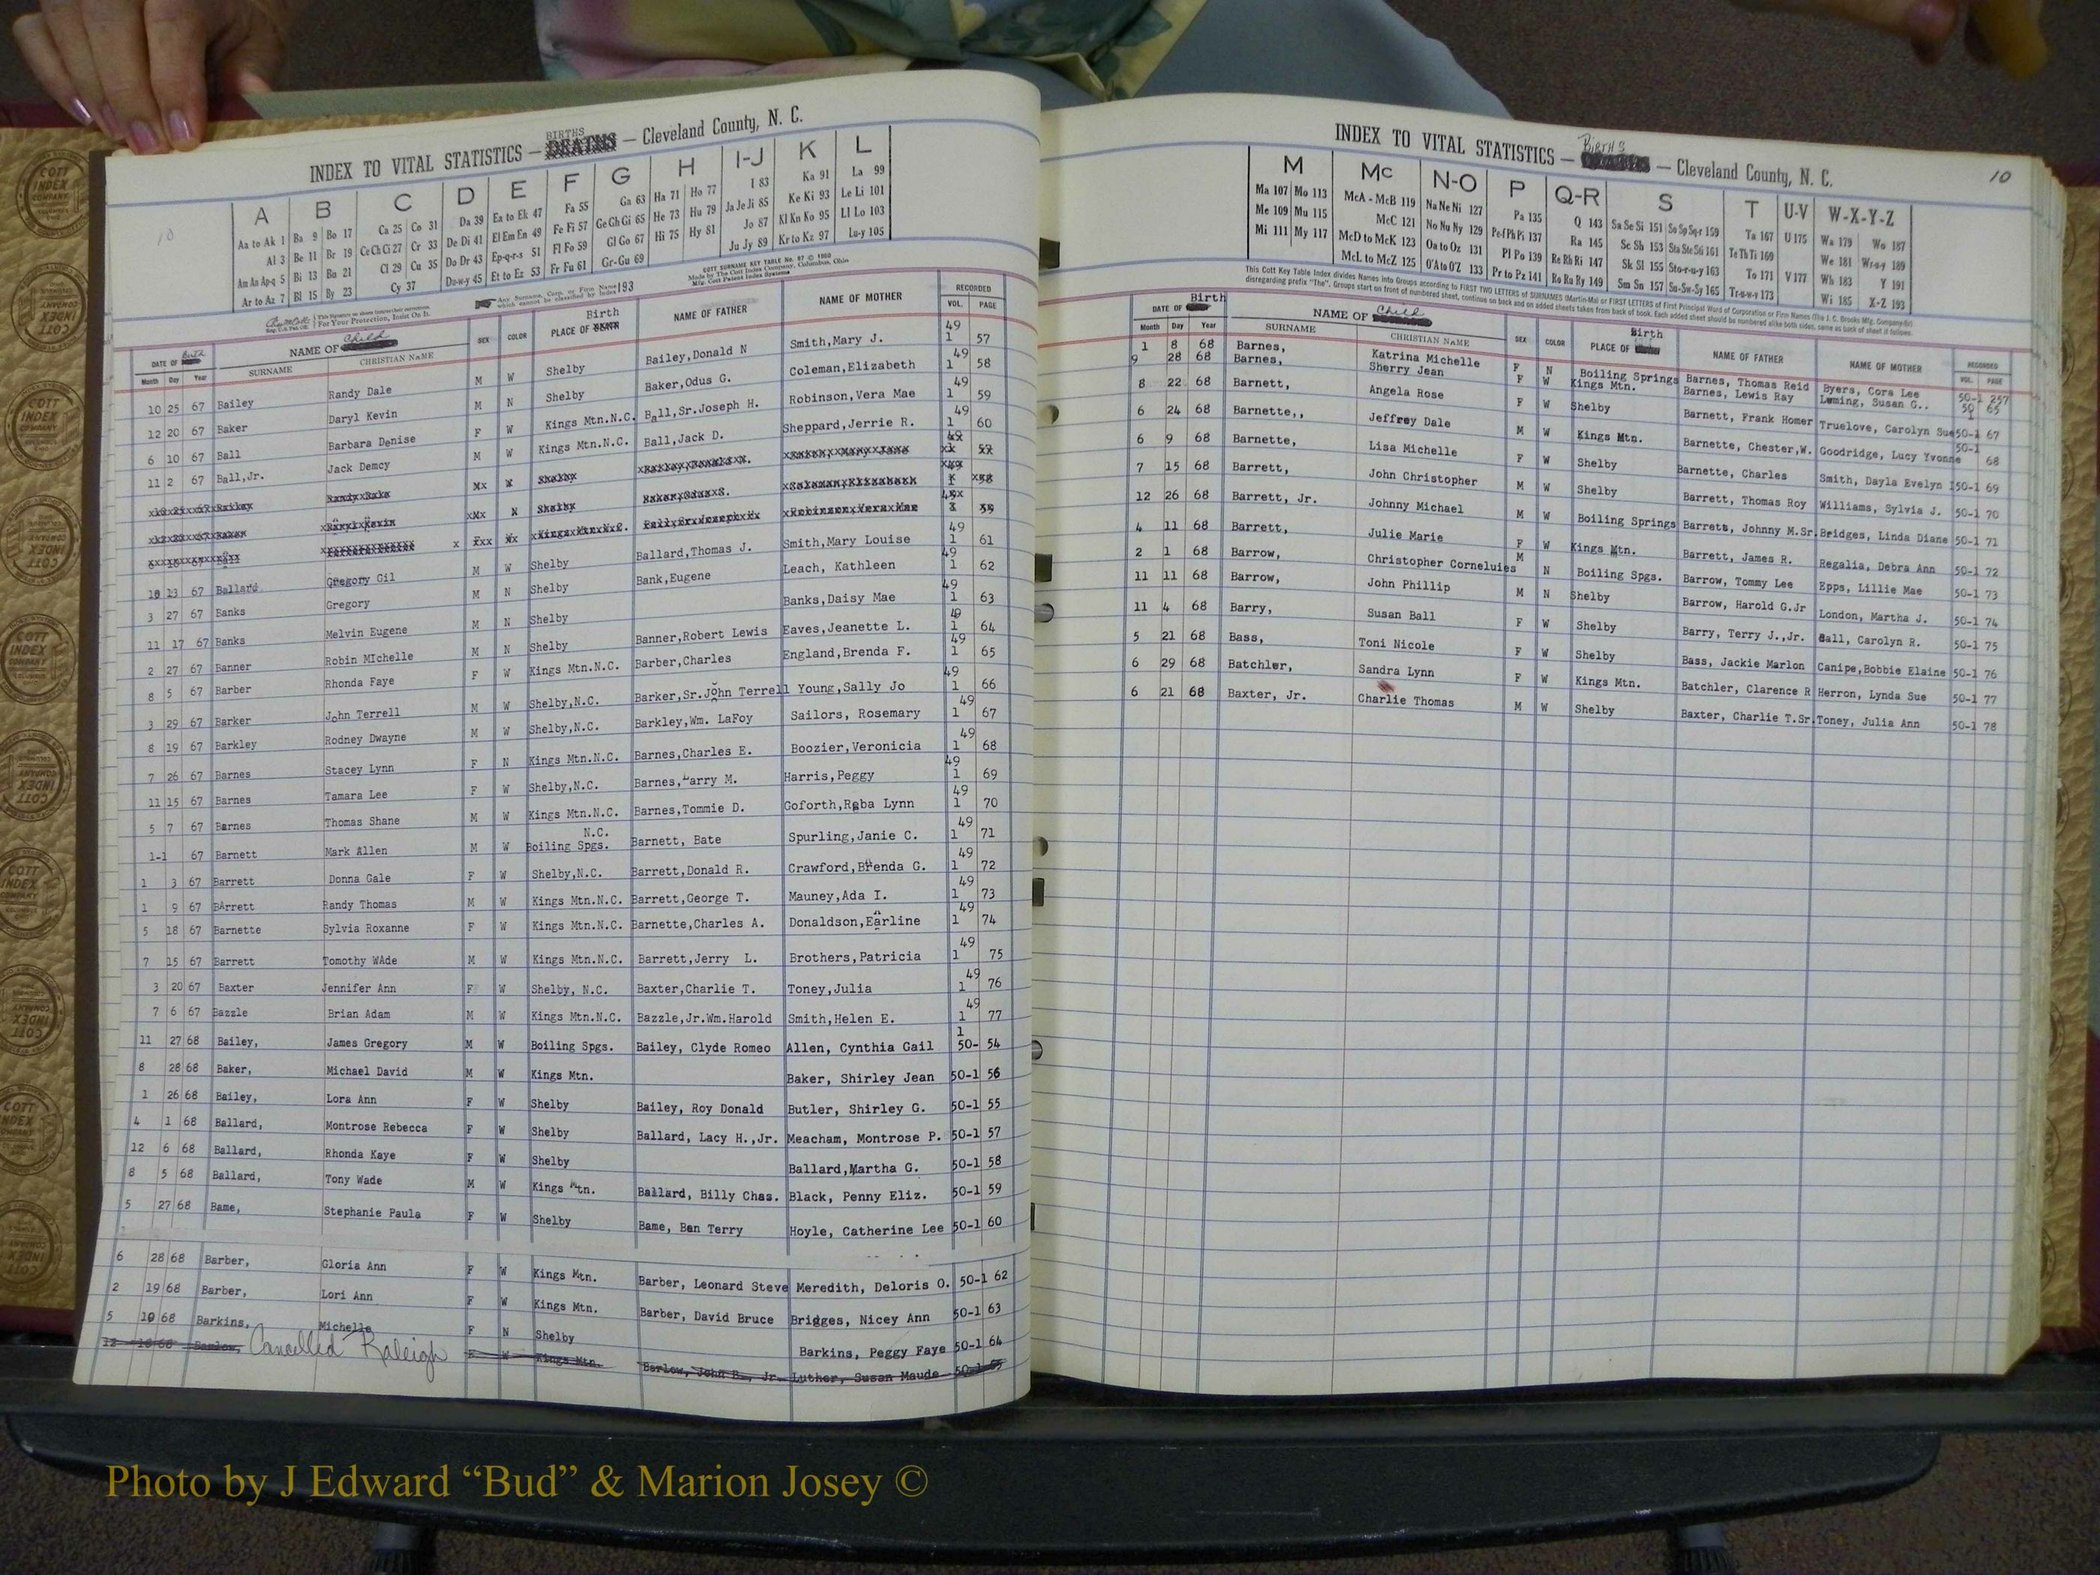 INDEX TO VITAL STATISTICS — BIRTHS DEATHS — Cleveland County, N. C.
10
A B C D E F G H I-J K L
Aa to Ak 1 Ba 9 Bo 17 Ca 25 Co 31 Da 39 Ea to Ek 47 Fa 55 Ga 63 Ha 71 Ho 77 I 83 Ka 91 La 99
Al 3 Be 11 Br 19 Ce Ch Ci 27 Cr 33 De Di 41 El Em En 49 Fe Fi 57 Ge Gh Gi 65 He 73 Hu 79 Ja Je Ji 85 Ke Ki 93 Le Li 101
Am An Ap-q 5 Bi 13 Bu 21 Cl 29 Cu 35 Do Dr 43 Ep-q-r-s 51 Fl Fo 59 Gl Go 67 Hi 75 Hy 81 Jo 87 Kl Kn Ko 95 Ll Lo 103
Ar to Az 7 Bl 15 By 23 Cy 37 Du-w-y 45 Et to Ez 53 Fr Fu 61 Gr-Gu 69 Ju Jy 89 Kr to Kz 97 Lu-y 105
COTT SURNAME KEY TABLE No. 97 © 1960
Made by The Cott Index Company, Columbus, Ohio
Any Surname, Corp. or Firm Name which cannot be classified by Index 193
For Your Protection, Insist On It.
DATE OF Birth NAME OF Child SEX COLOR PLACE OF Birth NAME OF FATHER NAME OF MOTHER RECORDED
Month Day Year SURNAME CHRISTIAN NAME VOL. PAGE
10 25 67 Bailey Randy Dale M W Shelby Bailey,Donald N Smith,Mary J. 49 1 57
12 20 67 Baker Daryl Kevin M N Shelby Baker,Odus G. Coleman,Elizabeth 49 1 58
6 10 67 Ball Barbara Denise F W Kings Mtn.N.C. Ball,Sr.Joseph H. Robinson,Vera Mae 49 1 59
11 2 67 Ball,Jr. Jack Demcy M W Kings Mtn.N.C. Ball,Jack D. Sheppard,Jerrie R. 49 1 60
10 13 67 Ballard Gregory Gil M W Shelby Ballard,Thomas J. Smith,Mary Louise 49 1 61
3 27 67 Banks Gregory M N Shelby Bank,Eugene Leach, Kathleen 49 1 62
11 17 67 Banks Melvin Eugene M N Shelby Banks,Daisy Mae 49 1 63
2 27 67 Banner Robin MIchelle M N Shelby Banner,Robert Lewis Eaves,Jeanette L. 49 1 64
8 5 67 Barber Rhonda Faye F W Kings Mtn.N.C. Barber,Charles England,Brenda F. 49 1 65
3 29 67 Barker John Terrell M W Shelby,N.C. Barker,Sr.John Terrell Young,Sally Jo 49 1 66
8 19 67 Barkley Rodney Dwayne M W Shelby,N.C. Barkley,Wm. LaFoy Sailors, Rosemary 49 1 67
7 26 67 Barnes Stacey Lynn F N Kings Mtn.N.C. Barnes,Charles E. Boozier,Veronicia 49 1 68
11 15 67 Barnes Tamara Lee F W Shelby,N.C. Barnes,Larry M. Harris,Peggy 49 1 69
5 7 67 Barnes Thomas Shane M W Kings Mtn.N.C. Barnes,Tommie D. Goforth,Reba Lynn 49 1 70
1-1 67 Barnett Mark Allen M W Boiling Spgs. N.C. Barnett, Bate Spurling,Janie C. 49 1 71
1 3 67 Barrett Donna Gale F W Shelby,N.C. Barrett,Donald R. Crawford,Brenda G. 49 1 72
1 9 67 BArrett Randy Thomas M W Kings Mtn.N.C. Barrett,George T. Mauney,Ada I. 49 1 73
5 18 67 Barnette Sylvia Roxanne F W Kings Mtn.N.C. Barnette,Charles A. Donaldson,Earline 49 1 74
7 15 67 Barrett Tomothy WAde M W Kings Mtn.N.C. Barrett,Jerry L. Brothers,Patricia 49 1 75
3 20 67 Baxter Jennifer Ann F W Shelby, N.C. Baxter,Charlie T. Toney,Julia 49 1 76
7 6 67 Bazzle Brian Adam M W Kings Mtn.N.C. Bazzle,Jr.Wm.Harold Smith,Helen E. 49 1 77
11 27 68 Bailey, James Gregory M W Boiling Spgs. Bailey, Clyde Romeo Allen, Cynthia Gail 50-1 54
8 28 68 Baker, Michael David M W Kings Mtn. Baker, Shirley Jean 50-1 56
1 26 68 Bailey, Lora Ann F W Shelby Bailey, Roy Donald Butler, Shirley G. 50-1 55
4 1 68 Ballard, Montrose Rebecca F W Shelby Ballard, Lacy H.,Jr. Meacham, Montrose P. 50-1 57
12 6 68 Ballard, Rhonda Kaye F W Shelby Ballard,Martha G. 50-1 58
8 5 68 Ballard, Tony Wade M W Kings Mtn. Ballard, Billy Chas. Black, Penny Eliz. 50-1 59
5 27 68 Bame, Stephanie Paula F W Shelby Bame, Ben Terry Hoyle, Catherine Lee 50-1 60
6 28 68 Barber, Gloria Ann F W Kings Mtn. Barber, Leonard Steve Meredith, Deloris O. 50-1 62
2 19 68 Barber, Lori Ann F W Kings Mtn. Barber, David Bruce Bridges, Nicey Ann 50-1 63
5 19 68 Barkins, Michelle F N Shelby Barkins, Peggy Faye 50-1 64
12 18 68 Barlow, Cancelled Raleigh W Kings Mtn. Barlow, John B., Jr. Luther, Susan Maude 50-1 65
INDEX TO VITAL STATISTICS — BIRTHS — Cleveland County, N. C.
10
M Mc N-O P Q-R S T U-V W-X-Y-Z
Ma 107 Mo 113 McA - McB 119 Na Ne Ni 127 Pa 135 Q 143 Sa Se Si 151 So Sp Sq-r 159 Ta 167 U 175 Wa 179 Wo 187
Me 109 Mu 115 McC 121 No Nu Ny 129 Pe-f Ph Pi 137 Ra 145 Sc Sh 153 Sta Ste Sti 161 Te Th Ti 169 We 181 Wr-u-y 189
Mi 111 My 117 McD to McK 123 Oa to Oz 131 Pl Po 139 Re Rh Ri 147 Sk Sl 155 Sto-r-u-y 163 To 171 V 177 Wh 183 Y 191
McL to McZ 125 O'A to O'Z 133 Pr to Pz 141 Ro Ru Ry 149 Sm Sn 157 Su-Sw-Sy 165 Tr-u-w-y 173 Wi 185 X-Z 193
This Cott Key Table Index divides Names into Groups according to FIRST TWO LETTERS of SURNAMES (Martin-Ma) or FIRST LETTERS of First Principal Word of Corporation or Firm Names (The J. C. Brooks Mfg. Company-Br)
disregarding prefix "The". Groups start on front of numbered sheet, continue on back and on added sheets taken from back of book. Each added sheet should be numbered alike both sides, same as back of sheet it follows.
DATE OF Birth NAME OF Child SEX COLOR PLACE OF Birth NAME OF FATHER NAME OF MOTHER RECORDED
Month Day Year SURNAME CHRISTIAN NAME VOL. PAGE
1 8 68 Barnes, Katrina Michelle F N Boiling Springs Barnes, Thomas Reid Byers, Cora Lee 50-1 257
9 28 68 Barnes, Sherry Jean F W Kings Mtn. Barnes, Lewis Ray Leming, Susan G.. 50 1 65
8 22 68 Barnett, Angela Rose F W Shelby Barnett, Frank Homer Truelove, Carolyn Sue 50-1 67
6 24 68 Barnette,, Jeffrey Dale M W Kings Mtn. Barnette, Chester,W. Goodridge, Lucy Yvonne 50-1 68
6 9 68 Barnette, Lisa Michelle F W Shelby Barnette, Charles Smith, Dayla Evelyn 50-1 69
7 15 68 Barrett, John Christopher M W Shelby Barrett, Thomas Roy Williams, Sylvia J. 50-1 70
12 26 68 Barrett, Jr. Johnny Michael M W Boiling Springs Barrett, Johnny M.Sr. Bridges, Linda Diane 50-1 71
4 11 68 Barrett, Julie Marie F W Kings Mtn. Barrett, James R. Regalia, Debra Ann 50-1 72
2 1 68 Barrow, Christopher Corneluies M N Boiling Spgs. Barrow, Tommy Lee Epps, Lillie Mae 50-1 73
11 11 68 Barrow, John Phillip M N Shelby Barrow, Harold G.Jr London, Martha J. 50-1 74
11 4 68 Barry, Susan Ball F W Shelby Barry, Terry J.,Jr. Ball, Carolyn R. 50-1 75
5 21 68 Bass, Toni Nicole F W Shelby Bass, Jackie Marlon Canipe,Bobbie Elaine 50-1 76
6 29 68 Batchler, Sandra Lynn F W Kings Mtn. Batchler, Clarence R Herron, Lynda Sue 50-1 77
6 21 68 Baxter, Jr. Charlie Thomas M W Shelby Baxter, Charlie T.Sr. Toney, Julia Ann 50-1 78
Photo by J Edward “Bud” & Marion Josey ©